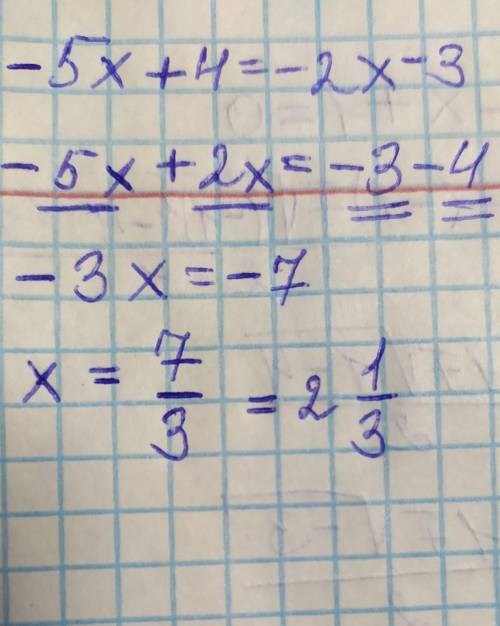 -5x + 4 = -2x - 3
-5x + 2x = -3 - 4
-3x = -7
x = 7/3 = 2 1/3